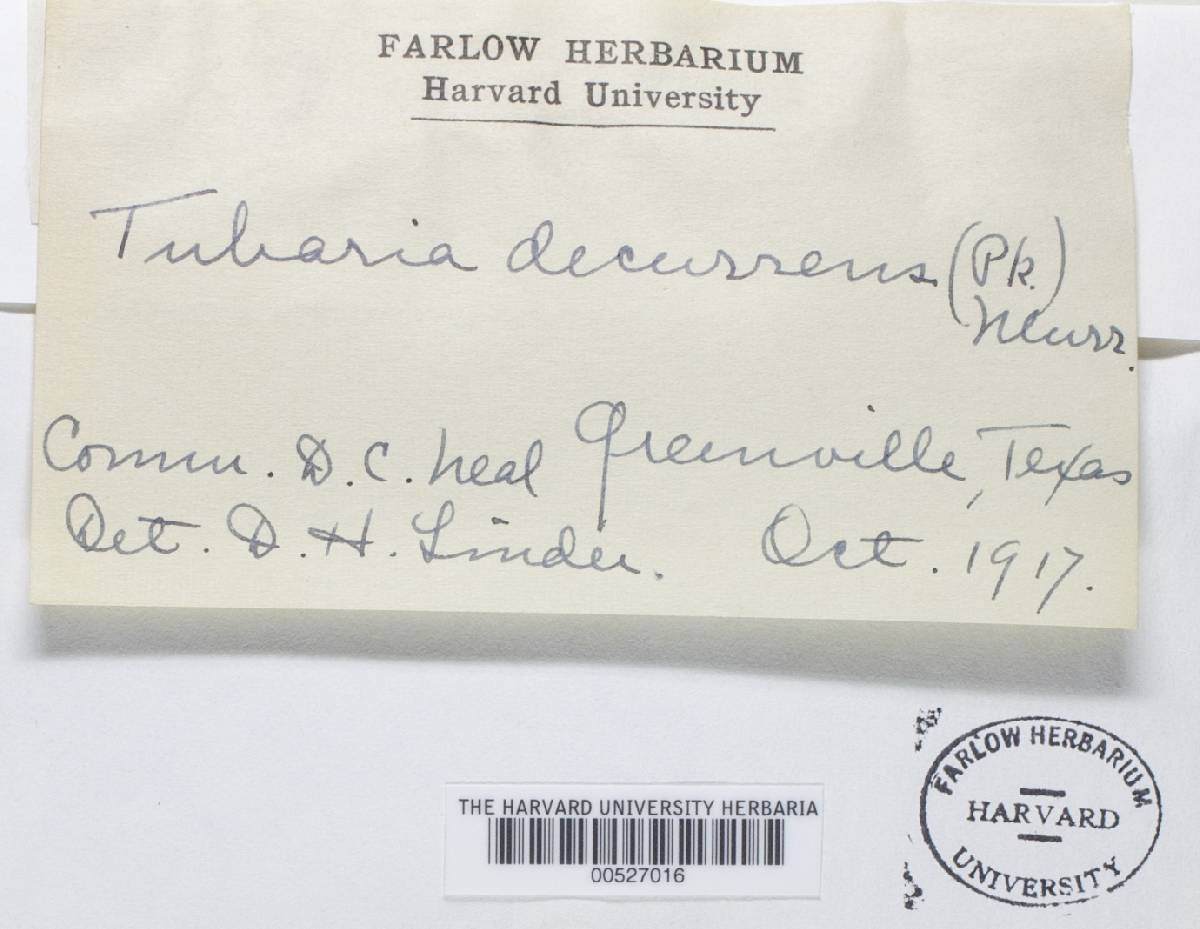 FARLOW HERBARIUM
Harvard University
Tubaria decurrens (Pk.)
Murr.
Comm. D. C. Neal Greenville, Texas
Det. D. H. Linder. Oct. 1917.
THE HARVARD UNIVERSITY HERBARIA
00527016
FARLOW HERBARIUM
HARVARD
UNIVERSITY